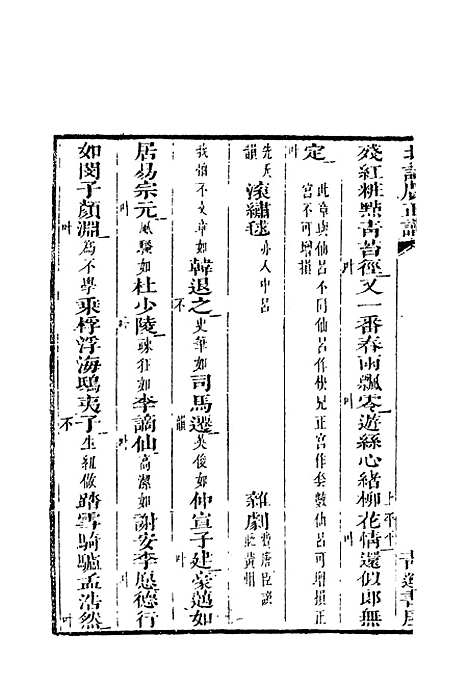 殘紅粧點青苔徑又一番春雨飄零遊絲心緒柳花情還似郎無
定
此章與仙呂不同仙呂作快兄正宮作煞數仙呂可增損正
宮不可增損
滾繡毬亦入中呂
雜劇
我怕不文章如韓退之史筆如司馬遷英俊如仲宣子建豪邁如
居易宗元風騷如杜少陵疎狂如李謫仙高潔如謝安李愿德行
如閔子顏淵為不學乘桴浮海鴟夷子生紐做踏雪騎驢孟浩然